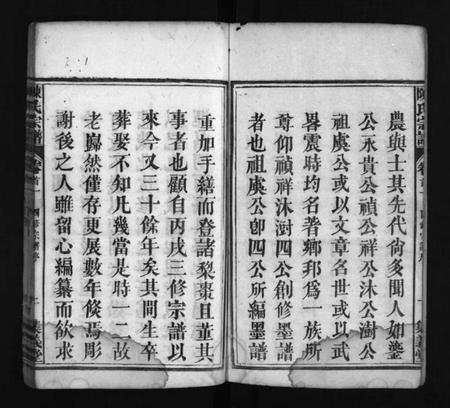 農與士其先代尙多聞人如鎣
公永貴公禎公祥公沐公澍公
祖虞公或以文章名世或以武
畧震時均名著鄉邦爲一族所
尊仰禎祥沐澍四公創修墨譜
者也祖虞公卽四公所編墨譜
重加手繕而登諸棃棗且董其
事者也顧自丙戌三修宗譜以
來今又三十餘年矣其間生卒
葬娶不知凡幾當是時一二故
老巋然僅存更展數年倐焉彫
謝後之人雖留心編纂而欲求
陳氏宗譜
卷首